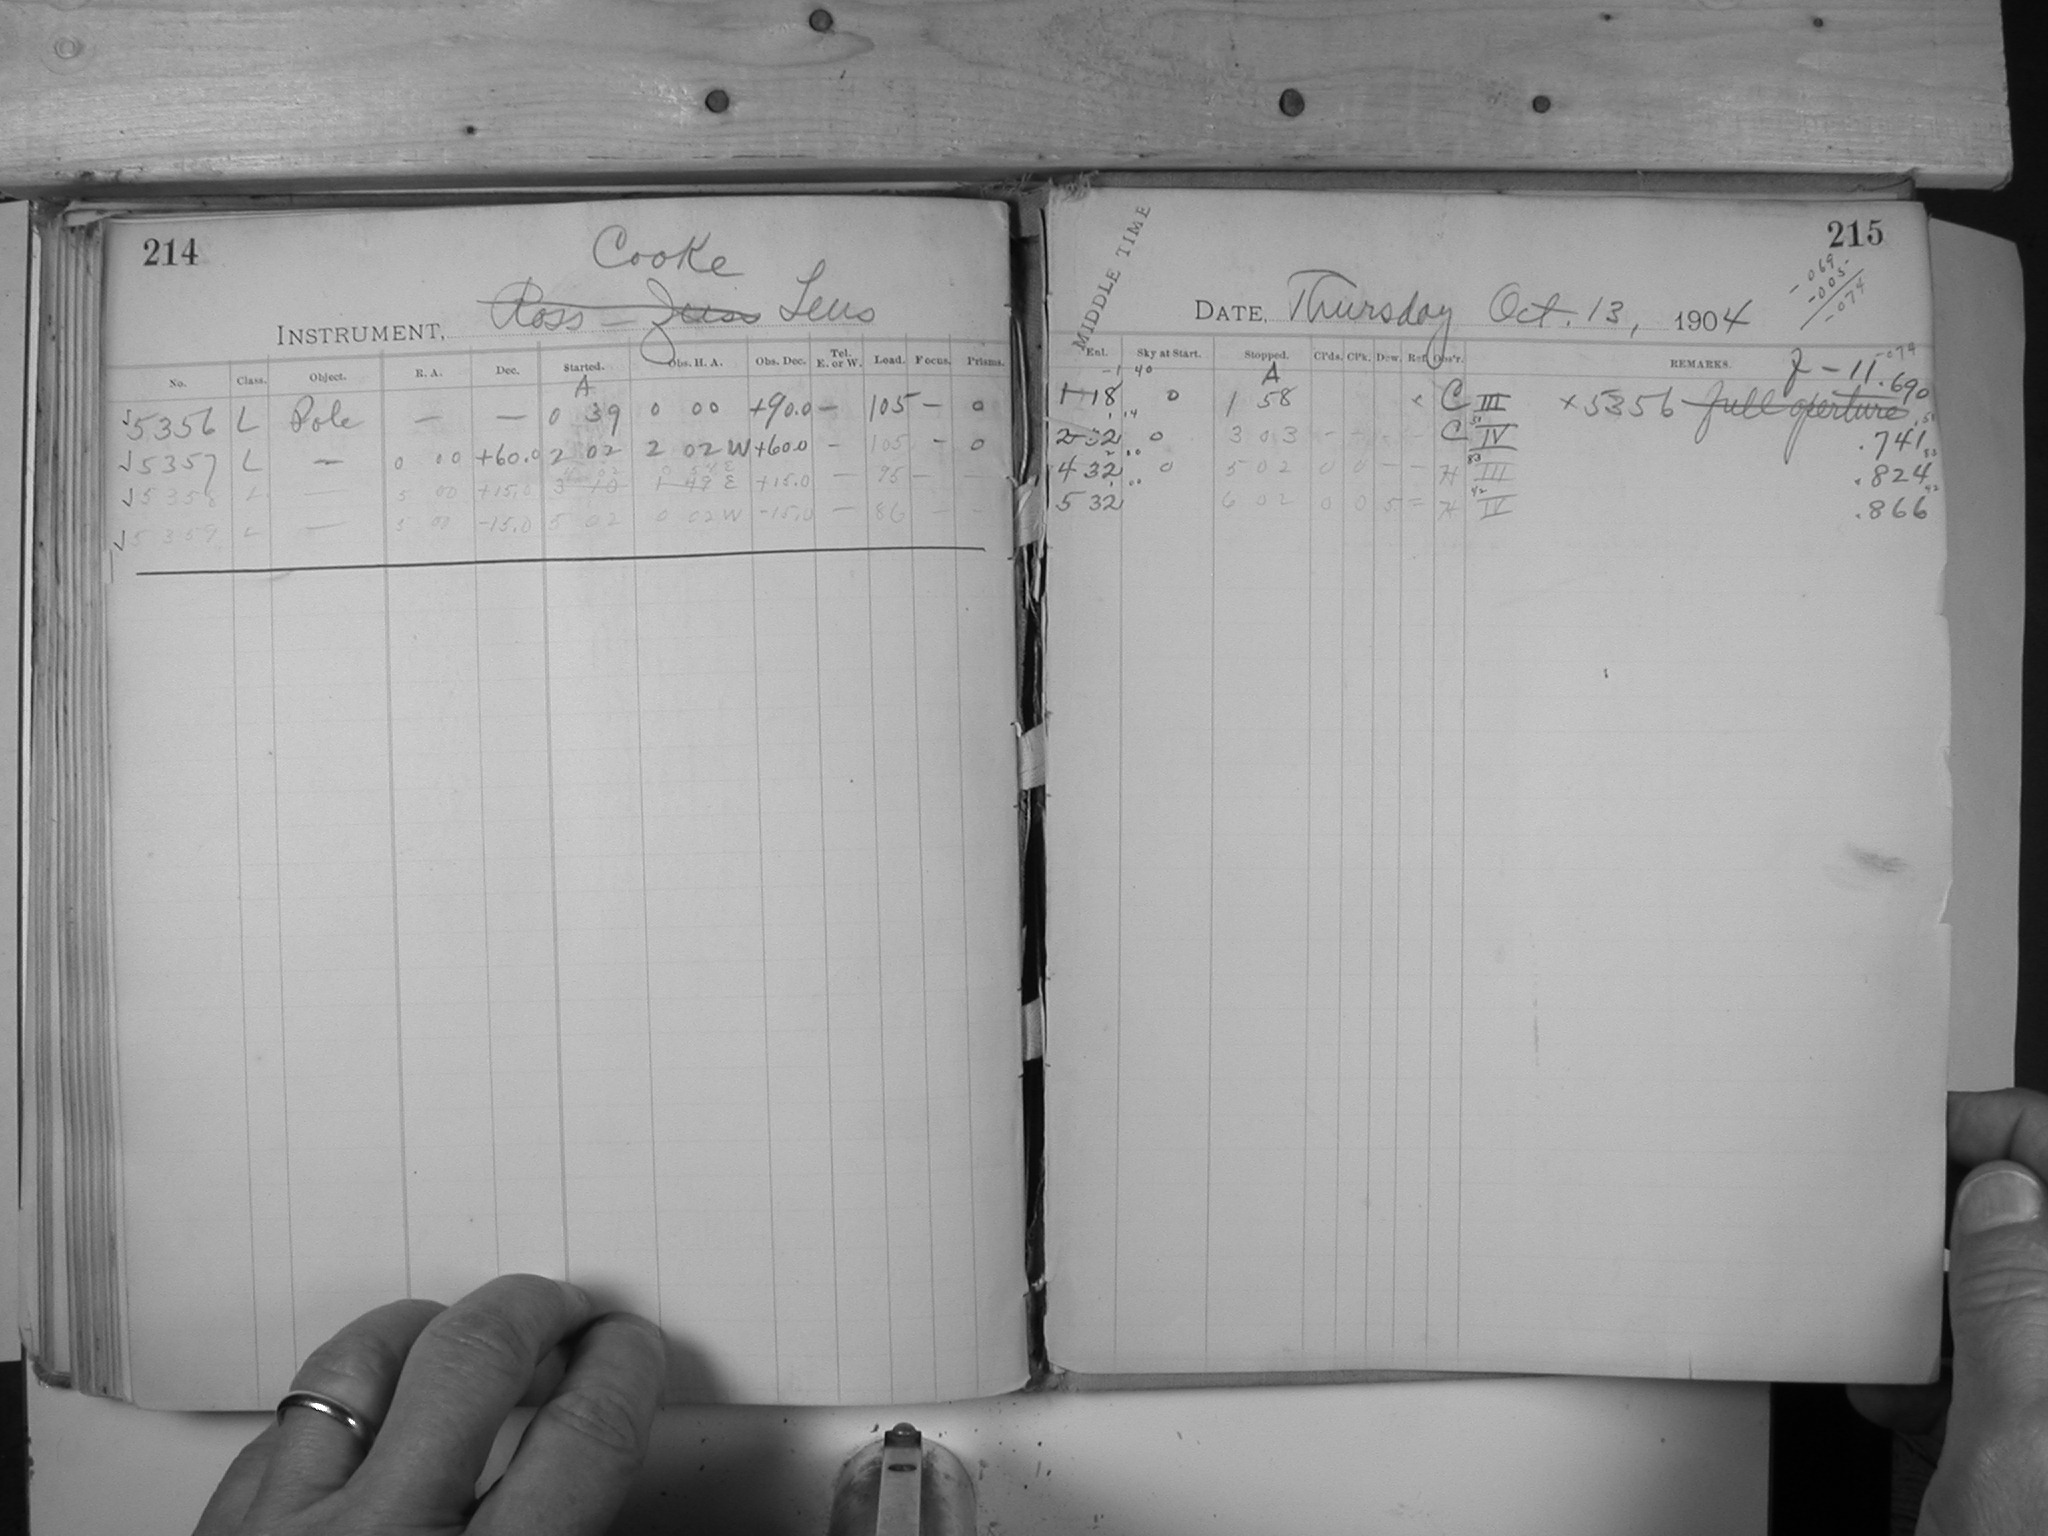 214
Cooke
INSTRUMENT, Ross – Zeiss Lens
No. Class. Object. R. A. Dec. Started. Obs. H. A. Obs. Dec. Tel. E. or W. Load. Focus. Prisms.
A
√5356 L Pole — — 0 39 0 00 +90.0 – 105 – 0
√5357 L — 0 00 +60.0 2 02 2 02 W +60.0 – 105 – 0
4 02 0 54 E
√5358 L — 5 00 +15.0 3 10 1 49 E +15.0 — 95 – —
√5359 L — 5 00 -15.0 5 02 0 02 W -15.0 — 86 – –
215
MIDDLE TIME
-069
-005
-074
DATE, Thursday Oct. 13, 1904
Enl. Sky at Start. Stopped. Cl'ds. Cl'k. Dew. Ref. Obs'r. REMARKS.
-1 40 A J – 11.690 -074
1 18 0 1 58 × C III × 5356 full aperture
1 14
2 32 0 3 03 - - - - C IV .741
2 00
4 32 0 5 02 0 0 – – H III .824
1 00
5 32 6 02 0 0 5 = H IV .866